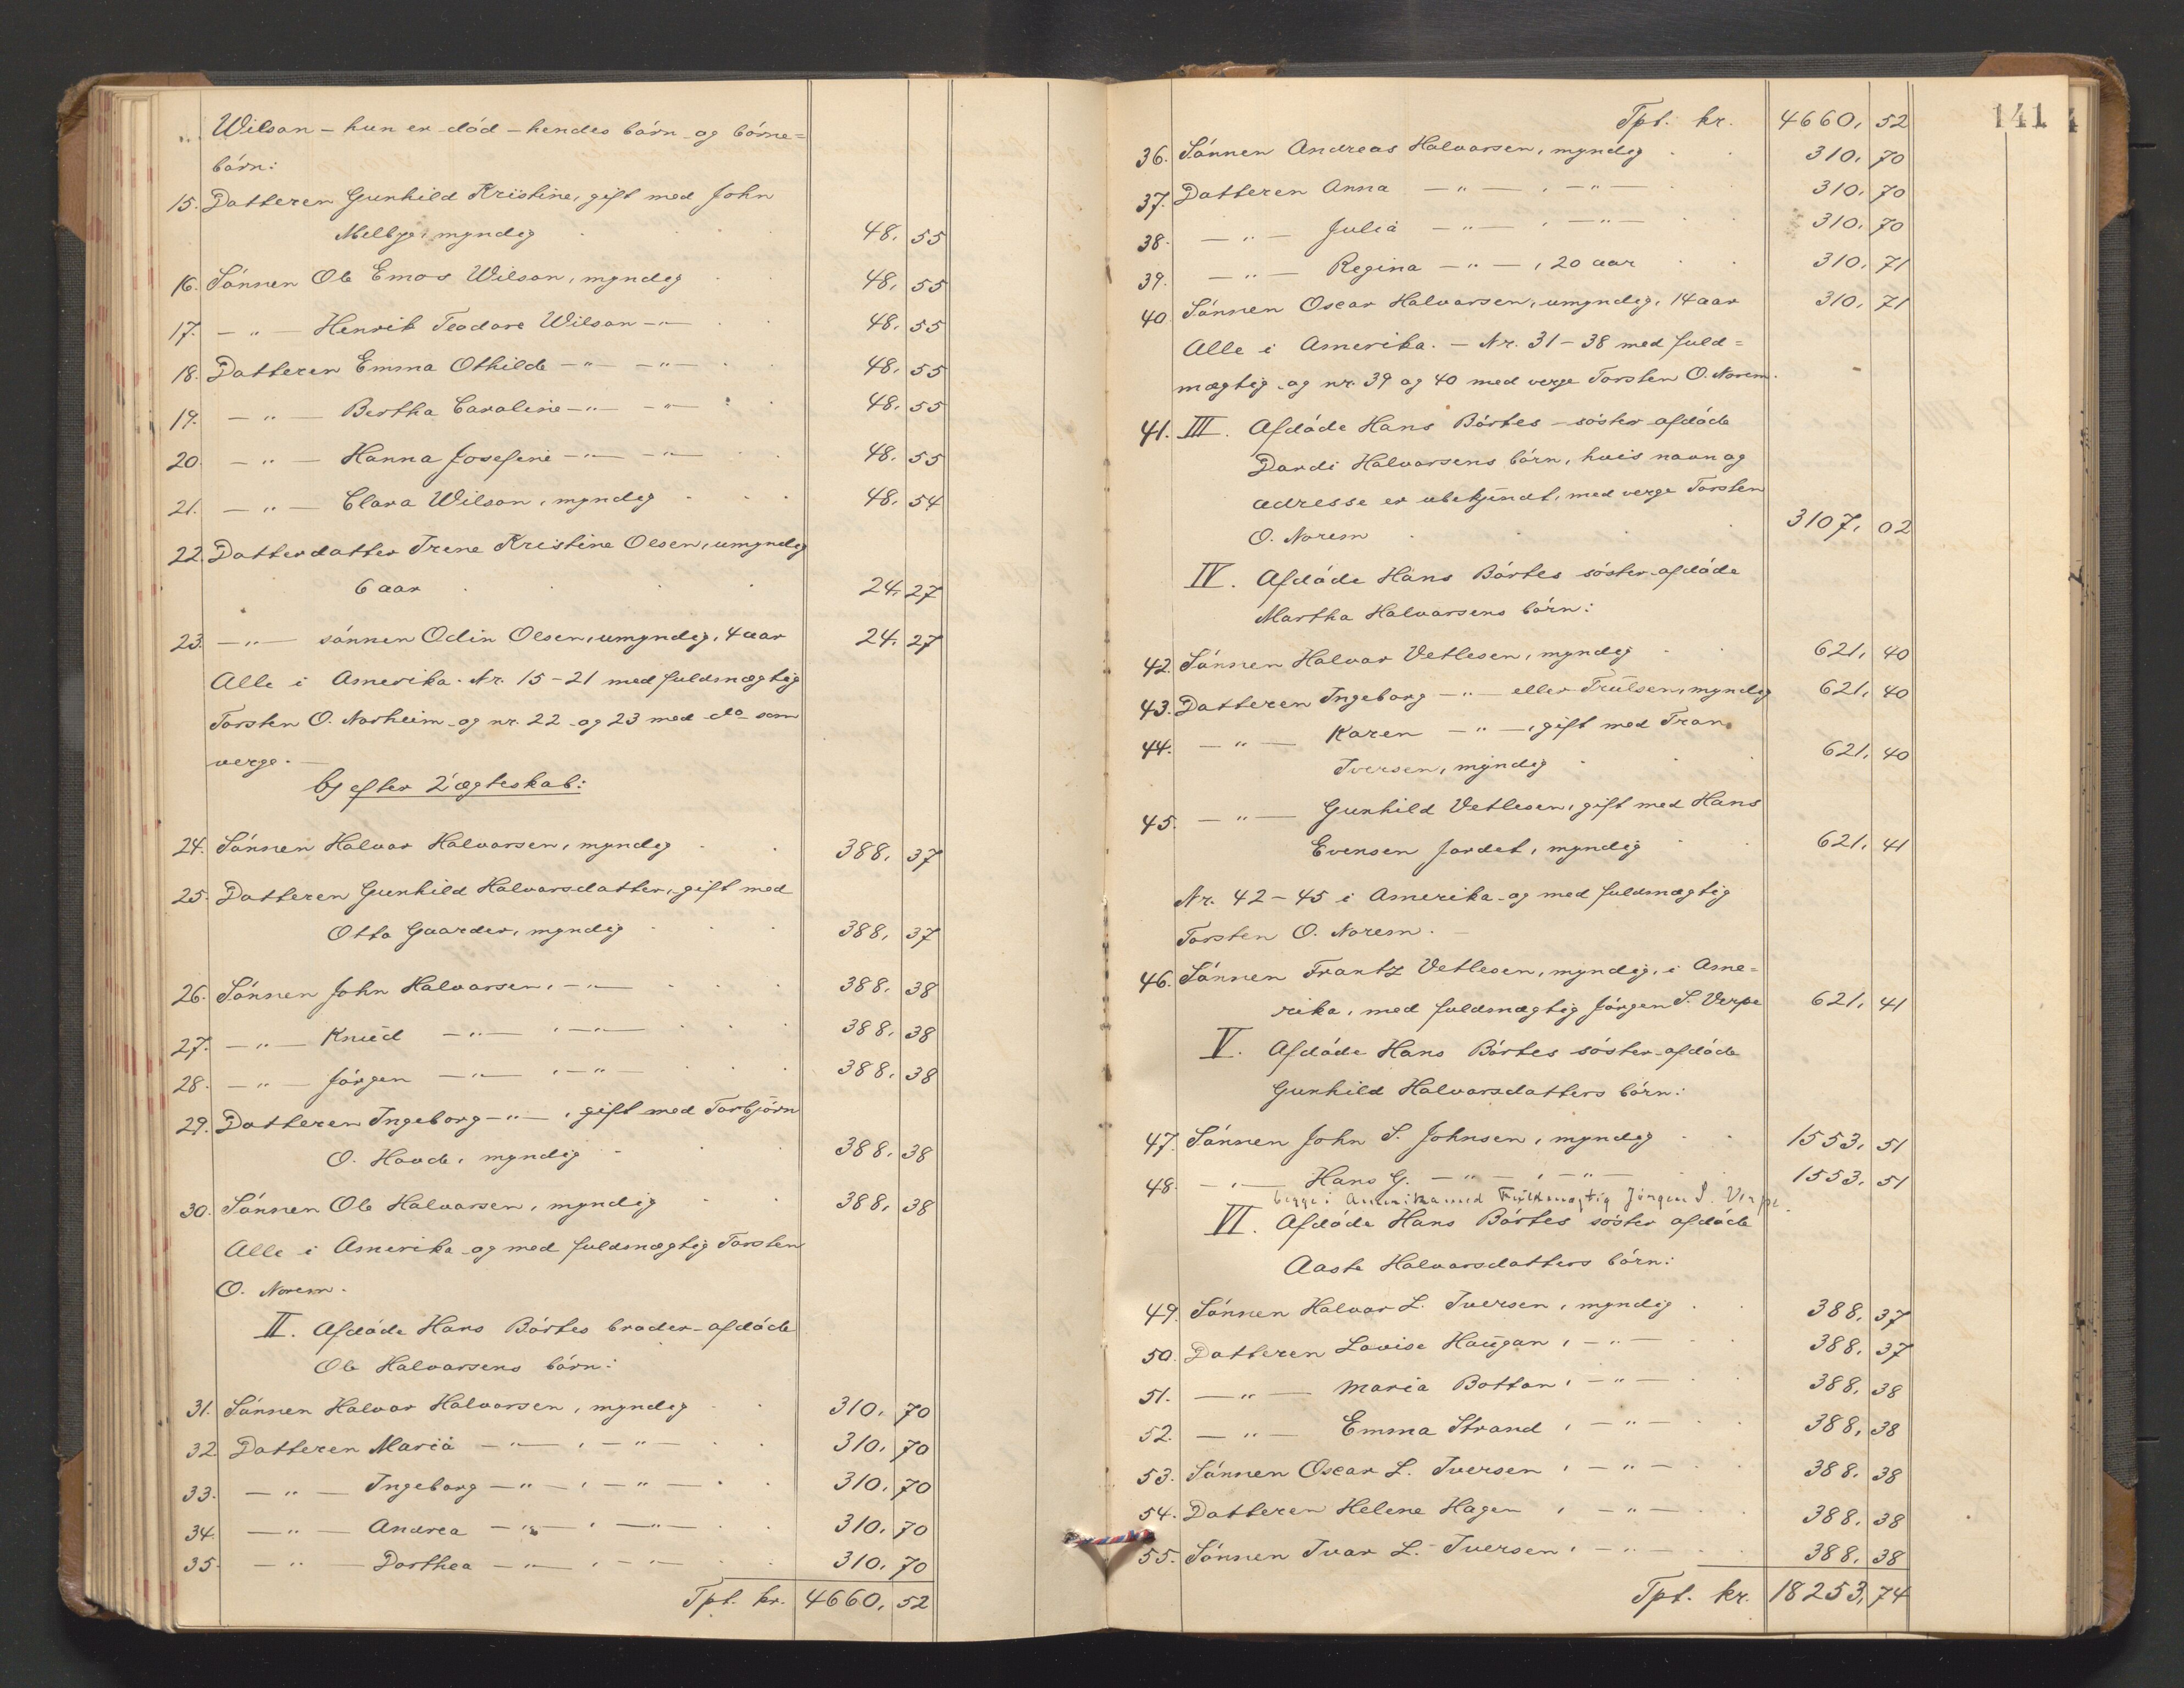 Wilson – hun er død – hendes børn og børne=
børn:
15. Datteren Gunhild Kristine, gift med John
Melbye, myndig 48, 55
16. Sønnen Ole Emos Wilson, myndig 48, 55
17. –"– Henrik Teodore Wilson –"– 48, 55
18. Datteren Emma Othilde –"– –"– 48, 55
19. –"– Bertha Caroline –"– –"– 48, 55
20. –"– Hanna Josefine –"– –"– 48, 55
21. –"– Clara Wilson, myndig 48, 54
22. Datterdatter Irene Kristine Olsen, umyndig
6 aar 24, 27
23. –"– sønnen Odin Olsen, umyndig, 4 aar 24, 27
Alle i Amerika. Nr. 15–21 med fuldmægtig
Torsten O. Norheim og nr. 22 og 23 med do som
verge. –
b) efter 2' ægteskab:
24. Sønnen Halvor Halvorsen, myndig 388, 37
25. Datteren Gunhild Halvorsdatter, gift med
Otto Gaarder, myndig 388, 37
26. Sønnen John Halvorsen, –"– 388, 38
27. –"– Knud –"– , –"– 388, 38
28. –"– Jørgen –"– , –"– 388, 38
29. Datteren Ingeborg –"– , gift med Torbjørn
O. Hovde, myndig 388, 38
30. Sønnen Ole Halvorsen, myndig 388, 38
Alle i Amerika og med fuldmægtig Torsten
O. Norem.
II. Afdøde Hans Børtes broder afdøde
Ole Halvorsens børn:
31. Sønnen Halvor Halvorsen, myndig 310, 70
32. Datteren Maria –"– , –"– 310, 70
33. –"– Ingeborg –"– , –"– 310, 70
34. –"– Andrea –"– , –"– 310, 70
35. –"– Dorthea –"– , –"– 310, 70
Tpt. kr. 4660, 52
141
Tpt. kr. 4660, 52
36. Sønnen Andreas Halvorsen, myndig 310, 70
37. Datteren Anna –"– , –"– 310, 70
38. –"– Julia –"– , –"– 310, 70
39. –"– Regina –"– , 20 aar 310, 71
40. Sønnen Oscar Halvorsen, umyndig, 14 aar 310, 71
Alle i Amerika. – Nr. 31–38 med fuld=
mægtig og nr. 39 og 40 med verge Torsten O. Norem.
41. III. Afdøde Hans Børtes søster afdøde
Dordi Halvorsens børn, hvis navn og
adresse er ubekjendt, med verge Torsten
O. Norem 3107, 02
IV. Afdøde Hans Børtes søster afdøde
Martha Halvorsens børn:
42. Sønnen Halvor Vetlesen, myndig 621, 40
43. Datteren Ingeborg –"– eller Trulsen, myndig 621, 40
44. –"– Karen –"– , gift med Iran
Iversen, myndig 621, 40
45. –"– Gunhild Vetlesen, gift med Hans
Evensen Jordet, myndig 621, 41
Nr. 42–45 i Amerika og med fuldmægtig
Torsten O. Norem. –
46. Sønnen Frantz Vetlesen, myndig, i Ame=
rika, med fuldmægtig Jørgen S. Verpe 621, 41
V. Afdøde Hans Børtes søster afdøde
Gunhild Halvorsdatters børn:
47. Sønnen John S. Johnsen, myndig 1553, 51
48. –"– Hans G. –"– , –"– 1553, 51
begge i Amerika med Fuldmægtig Jørgen S. Verpe.
VI. Afdøde Hans Børtes søster afdøde
Aaste Halvorsdatters børn:
49. Sønnen Halvor L. Iversen, myndig 388, 37
50. Datteren Lovise Haugan, –"– 388, 37
51. –"– Maria Botton, –"– 388, 38
52. –"– Emma Strand, –"– 388, 38
53. Sønnen Oscar L. Iversen, –"– 388, 38
54. Datteren Helene Hagen, –"– 388, 38
55. Sønnen Ivar L. Iversen, –"– 388, 38
Tpt. kr. 18253, 74